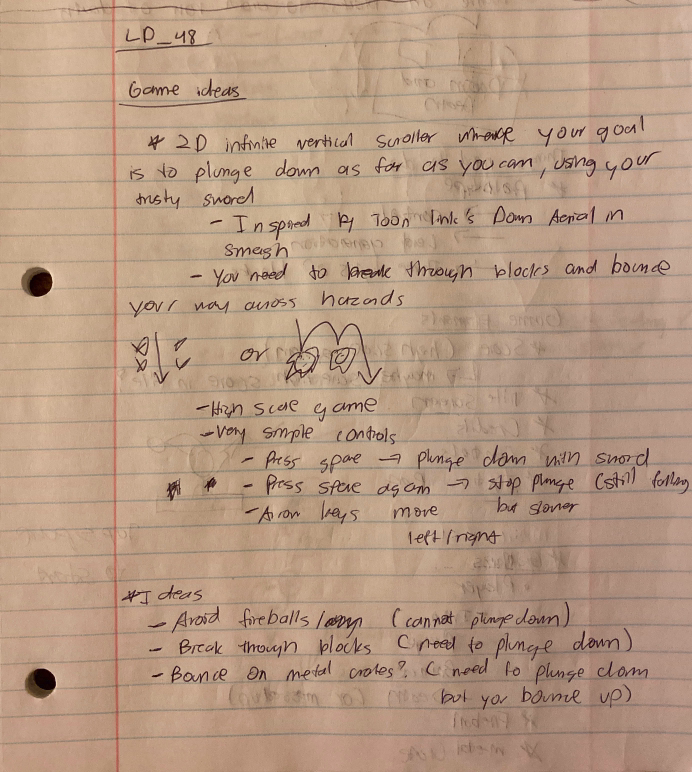 LD_48
Game ideas
* 2D infinite vertical scroller where your goal
is to plunge down as far as you can, using your
trusty sword
- Inspired by Toon Link's Down Aerial in
Smash
- You need to break through blocks and bounce
your way across hazards
or
- High score game
- Very simple controls
- Press space → plunge down with sword
* - Press space again → stop plunge (still falling
but slower
- Arrow keys move
left/right
* Ideas
- Avoid fireballs / (cannot plunge down)
- Break though blocks (need to plunge down)
- Bounce on metal crates? (need to plunge down
but you bounce up)